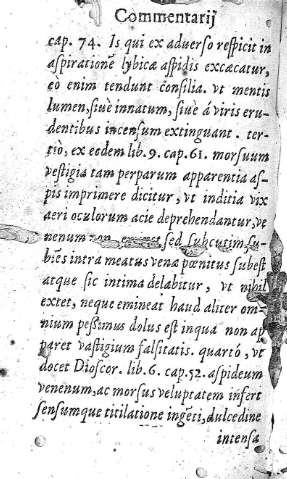 Commentarij
cap. 74. Is qui ex aduerſo reſpicit in
aſpirationẽ lybicæ aſpidis excæcatur,
eo enim tendunt cõſilia. vt mentis
lumen, ſiuè innatum, ſiuè á viris eru-
dentibus incenſum extinguant. ter-
tiò, ex eodem lib. 9. cap. 61. morſuum
veſtigia tam perparum apparentia aſ-
pis imprimere dicitur, vt inditia vix
acri oculorum acie deprehendantur, ve
nenum non ſed ſubcutim ſu-
biẽs intra meatus venæ pœnitus ſubeſt
atque ſic intima delabitur, vt nihil
extet, neque emineat haud aliter om-
nium peßimus dolus eſt in qua non ap
paret vaſtigium falſitatis. quartó, vt
docet Dioſcor. lib. 6. cap. 52. aſpideum
venenum, ac morſus veluptatem infert
ſenſumque titilatione ingẽti, dulcedine
intenſa